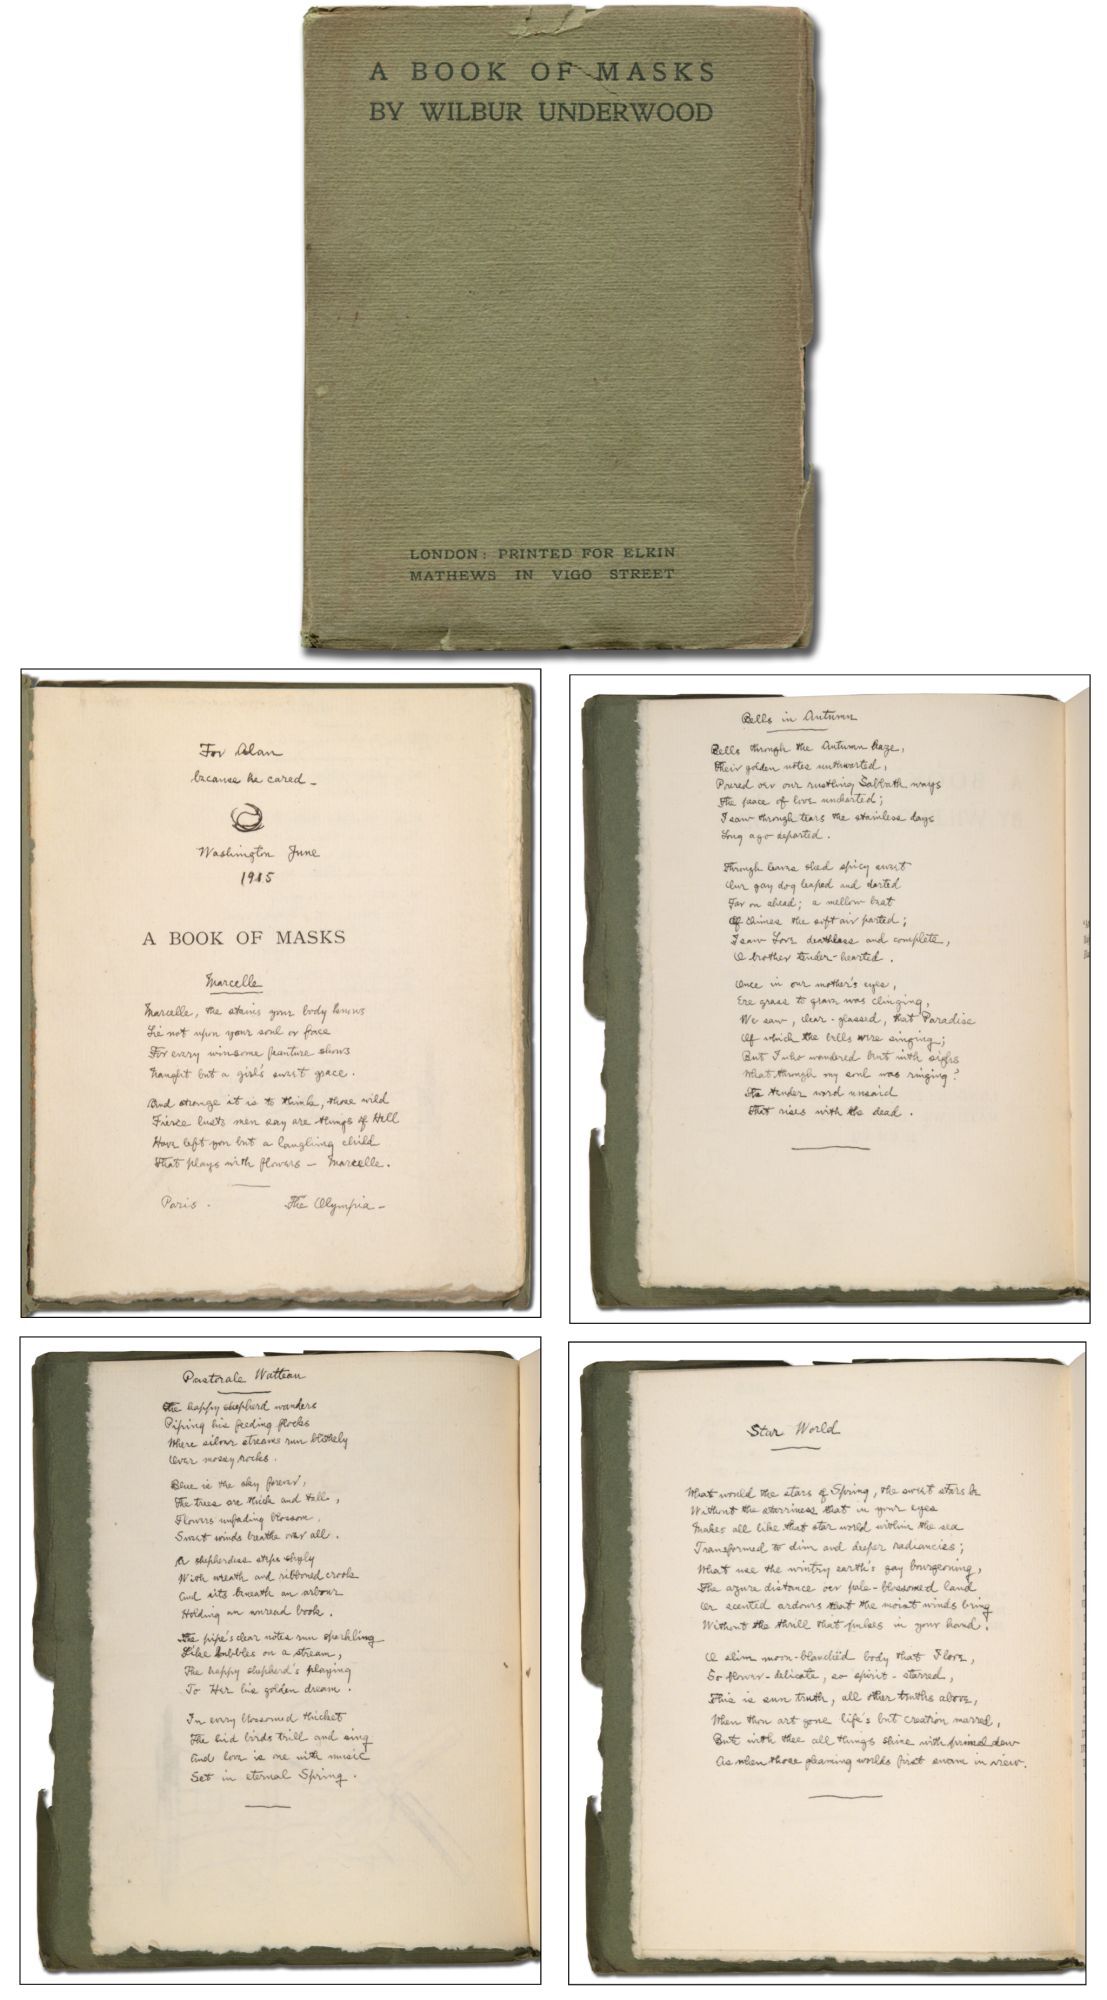 A BOOK OF MASKS
BY WILBUR UNDERWOOD
LONDON: PRINTED FOR ELKIN
MATHEWS IN VIGO STREET
For Alan
because he cared –
Washington June
1915
A BOOK OF MASKS
Marcelle
Marcelle, the stains your body knows
Lie not upon your soul or face
For every winsome feature shows
Naught but a girl's sweet grace.
And strange it is to think, those wild
Fierce lusts men say are things of Hell
Have left you but a laughing child
That plays with flowers – Marcelle.
Paris. The Olympia –
Bells in Autumn
Bells through the Autumn haze,
Their golden notes unthwarted,
Poured oer our rustling Sabbath ways
The peace of love uncharted;
I saw through tears the stainless days
Long ago departed.
Through leaves shed spicy sweet
Our gay dog leaped and darted
Far on ahead; a mellow beat
Of chimes the soft air parted;
I saw Love deathless and complete,
O brother tender-hearted.
Once in our mother's eyes,
Ere grass to grave was clinging,
We saw, clear-glassed, that Paradise
Of which the bells were singing;
But I who wandered but with sighs
What through my soul was ringing?
The tender word unsaid
That rises with the dead.
Pastorale Watteau
The happy shepherd wanders
Piping his feeding flocks
Where silver streams run blithely
Over mossy rocks.
Blue is the sky forever,
The trees are thick and tall,
Flowers unfading blossom,
Sweet winds breathe over all.
A shepherdess steps shyly
With wreath and ribboned crook
And sits beneath an arbour
Holding an unread book.
The pipe's clear notes run sparkling
Like bubbles on a stream,
The happy shepherd's playing
To Her his golden dream.
In every blossomed thicket
The hid birds trill and sing
And love is one with music
Set in eternal Spring.
Star World
What would the stars of Spring, the sweet stars be
Without the starriness that in your eyes
Makes all like that star world within the sea
Transformed to dim and deeper radiancies;
What use the wintry earth's gay bourgeoning,
The azure distance oer pale-blossomed land
Or scented ardours that the moist winds bring
Without the thrill that pulses in your hand.
O slim moon-blanchèd body that I love,
So flower-delicate, so spirit-starred,
This is sun truth, all other truths above,
When thou art gone life's but creation marred,
But with thee all things shine with primal dew
As when those gleaming worlds first swam in view.